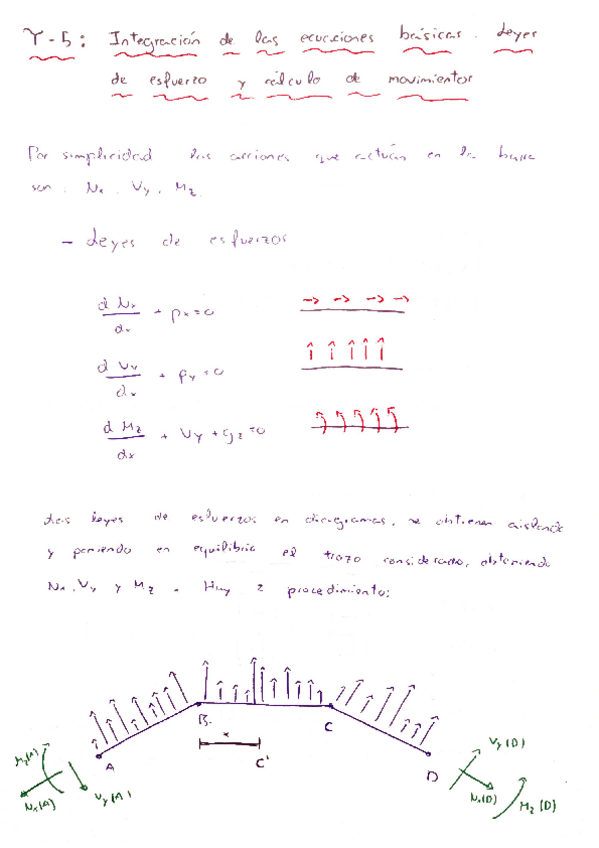 T-5: Integración de las ecuaciones básicas. Leyes
de esfuerzo y cálculo de movimientos
Por simplicidad las acciones que actúan en la barra
son: Nx, Vy, Mz.
- Leyes de esfuerzos
d Nx / dx + px = 0
d Vy / dx + py = 0
d Mz / dx + Vy + gz = 0
Las leyes de esfuerzos en diagramas, se obtienen aislando
y poniendo en equilibrio el trozo considerado, obteniendo
Nx, Vy y Mz. Hay 2 procedimiento:
A B C D
x
C'
Mz(A)
Nx(A)
Vy(A)
Vy(D)
Nx(D)
Mz(D)